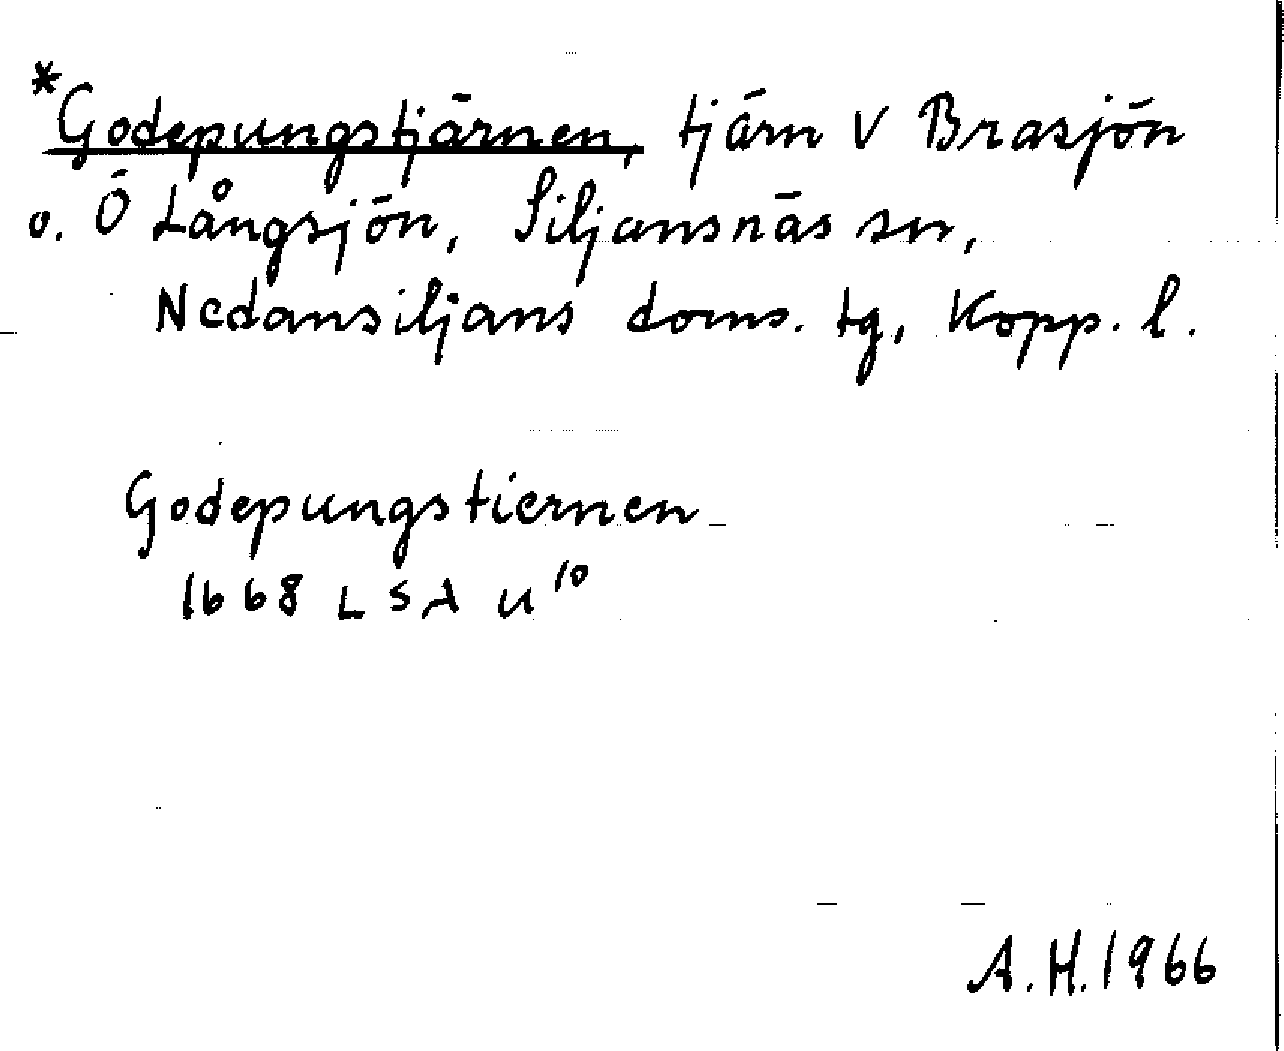 *Godepungstjärnen, tjärn V Brasjön
o. Ö Långsjön, Siljansnäs sn,
Nedansiljans doms. tg, Kopp. l.
Godepungstiernen
1668 LSA U¹⁰
A.H. 1966